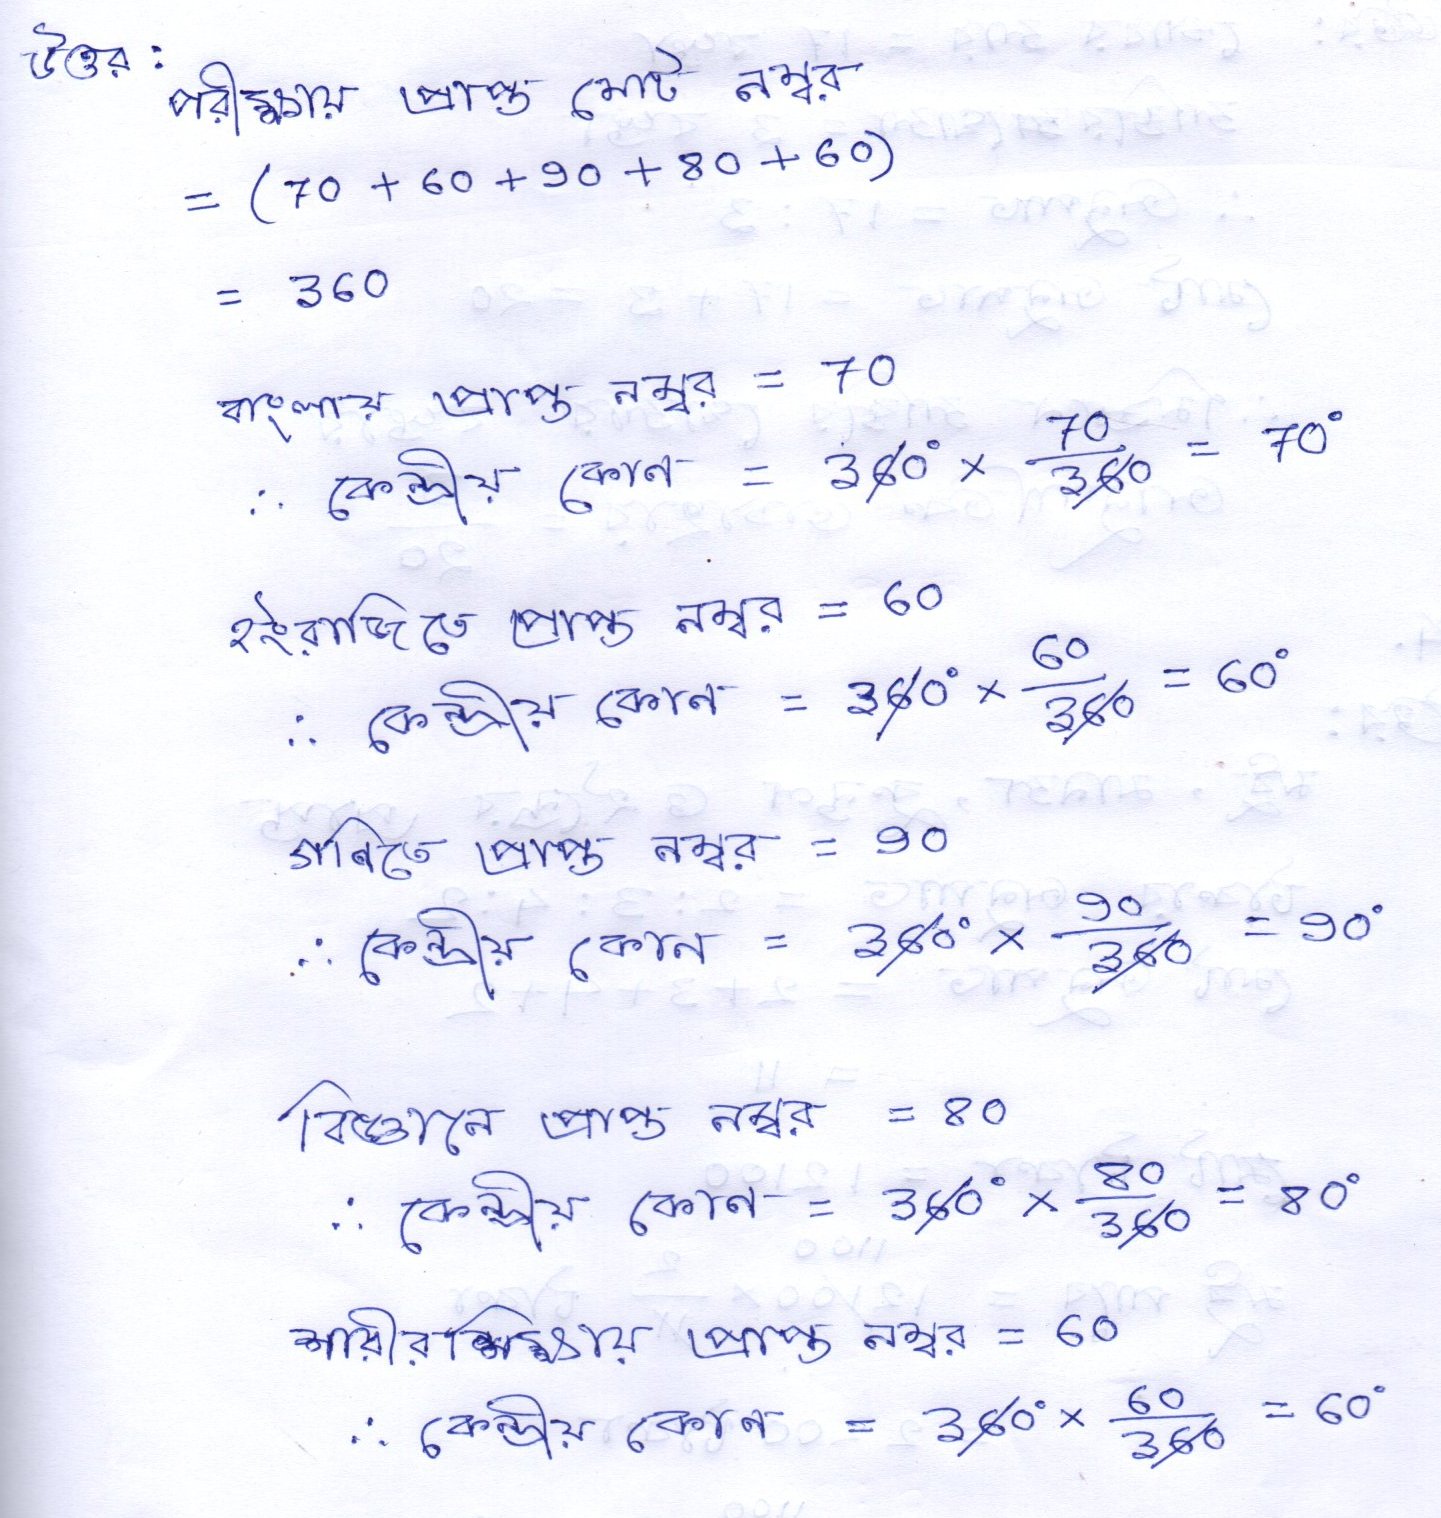 উত্তর :
পরীক্ষায় প্রাপ্ত মোট নম্বর
= (70 + 60 + 90 + 80 + 60)
= 360
বাংলায় প্রাপ্ত নম্বর = 70
∴ কেন্দ্রীয় কোণ = 360° × 70/360 = 70°
ইংরাজিতে প্রাপ্ত নম্বর = 60
∴ কেন্দ্রীয় কোণ = 360° × 60/360 = 60°
গণিতে প্রাপ্ত নম্বর = 90
∴ কেন্দ্রীয় কোণ = 360° × 90/360 = 90°
বিজ্ঞানে প্রাপ্ত নম্বর = 80
∴ কেন্দ্রীয় কোণ = 360° × 80/360 = 80°
শারীরশিক্ষায় প্রাপ্ত নম্বর = 60
∴ কেন্দ্রীয় কোণ = 360° × 60/360 = 60°